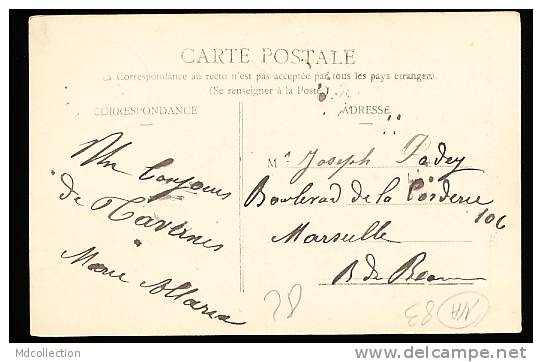 CARTE POSTALE
La Correspondance au recto n'est pas acceptée par tous les pays étrangers
(Se renseigner à la Poste)
CORRESPONDANCE
ADRESSE
Un bonjour
de Tavernes
Marie Allaria
Mr Joseph Padey
Boulevard de la Corderie
106
Marseille
B de
83
Mdcollection
http://www.delcampe.net